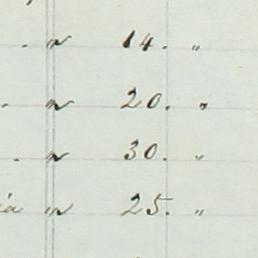 . " 14. "
. " 20. "
. " 30. "
ia " 25. "